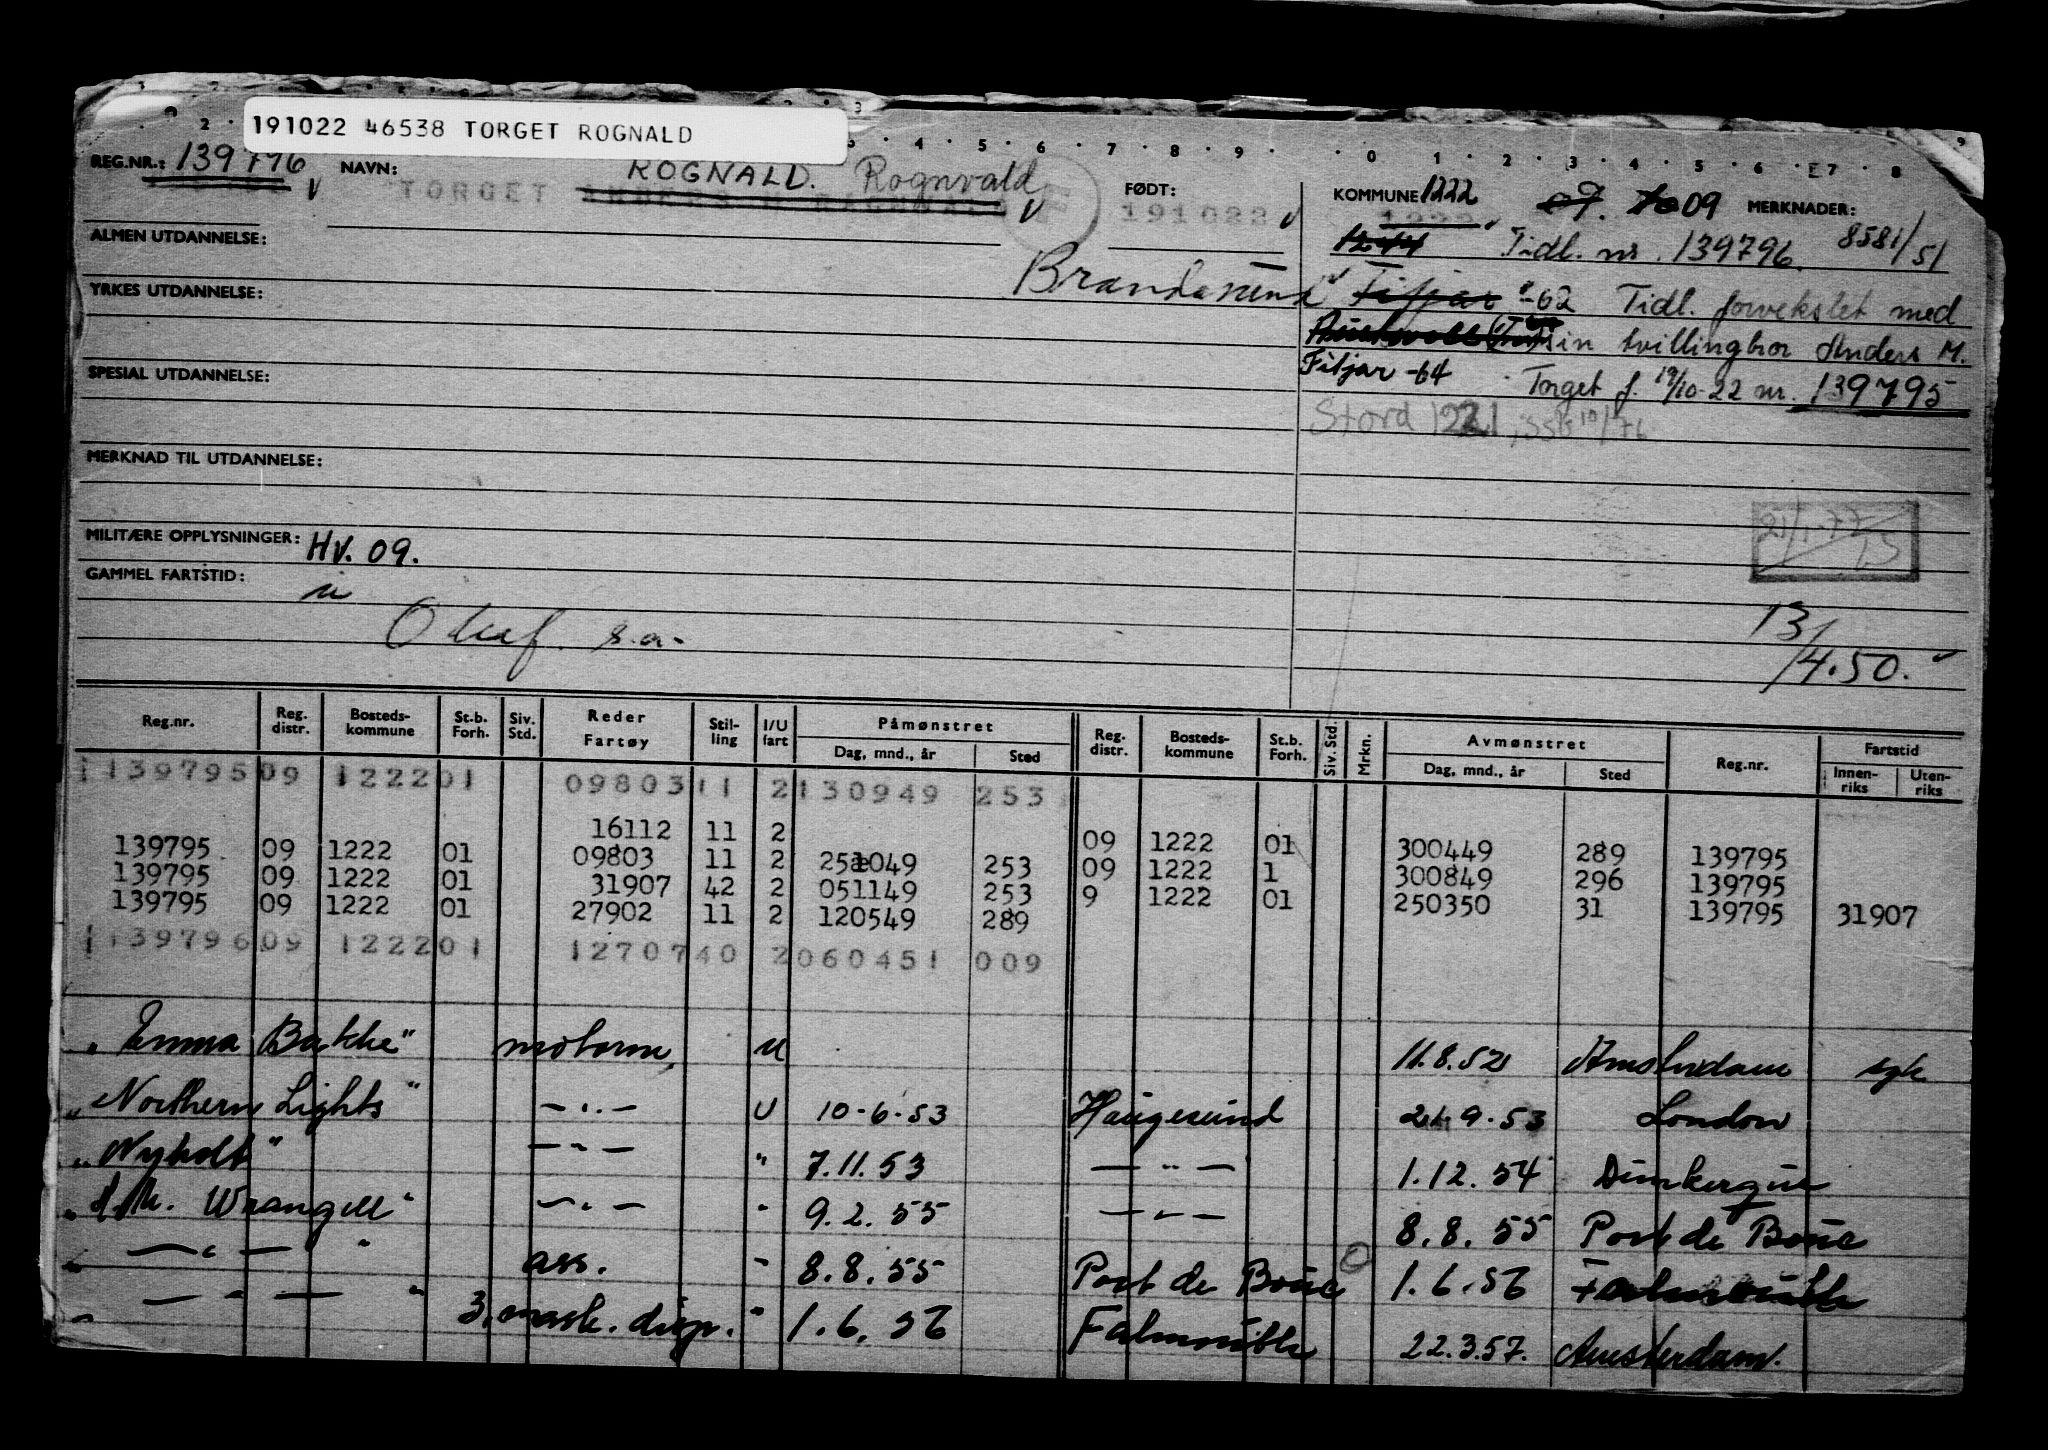 191022 46538 TORGET ROGNALD
REG.NR.: 139796 NAVN: TORGET ROGNALD. Rognvald FØDT: 191022 KOMMUNE 1222 1222 09 MERKNADER:
ALMEN UTDANNELSE: 1244 Tidl. nr. 139796. 8581/51
YRKES UTDANNELSE: Brandasund Fitjar -62 Tidl. forvekslet med
sin tvillingbror Anders M.
SPESIAL UTDANNELSE: Fitjar -64 Torget f. 19/10-22 nr. 139795
Stord 1221, SSB 10/76
MERKNAD TIL UTDANNELSE:
21/1-77
MILITÆRE OPPLYSNINGER: HV. 09.
GAMMEL FARTSTID:
s.a. 13/4.50.
Reg.nr. Reg. distr. Bosteds-kommune St.b. Forh. Siv. Std. Reder Fartøy Stil-ling I/U fart Påmønstret Dag, mnd., år Sted Reg. distr. Bosteds-kommune St.b. Forh. Siv. Std. Mrkn. Avmønstret Dag, mnd., år Sted Reg.nr. Fartstid Innen-riks Uten-riks
139795 09 1222 01 09803 11 2 130949 253
16112 11 2 09 1222 01 300449 289 139795
139795 09 1222 01 09803 11 2 251049 253 09 1222 1 300849 296 139795
139795 09 1222 01 31907 42 2 051149 253 9 1222 01 250350 31 139795 31907
139795 09 1222 01 27902 11 2 120549 289
139796 09 1222 01 12707 40 2 060451 009
"Emma Bakke" motorm. U 11.8.52 Amsterdam syk
"Northern Lights" — " — U 10-6-53 Haugesund 21.9.53 London
"Nyholt" — " — " 7.11.53 — " — 1.12.54 Dunkerque
" Wrangell" — " — " 9.2.55 — " — 8.8.55 Port de Bouc
" — " — " ass. " 8.8.55 Port de Bouc 1.6.56 Falmouth
" — " — " 3. mask. disp. " 1.6.56 Falmouth 22.3.57. Amsterdam.